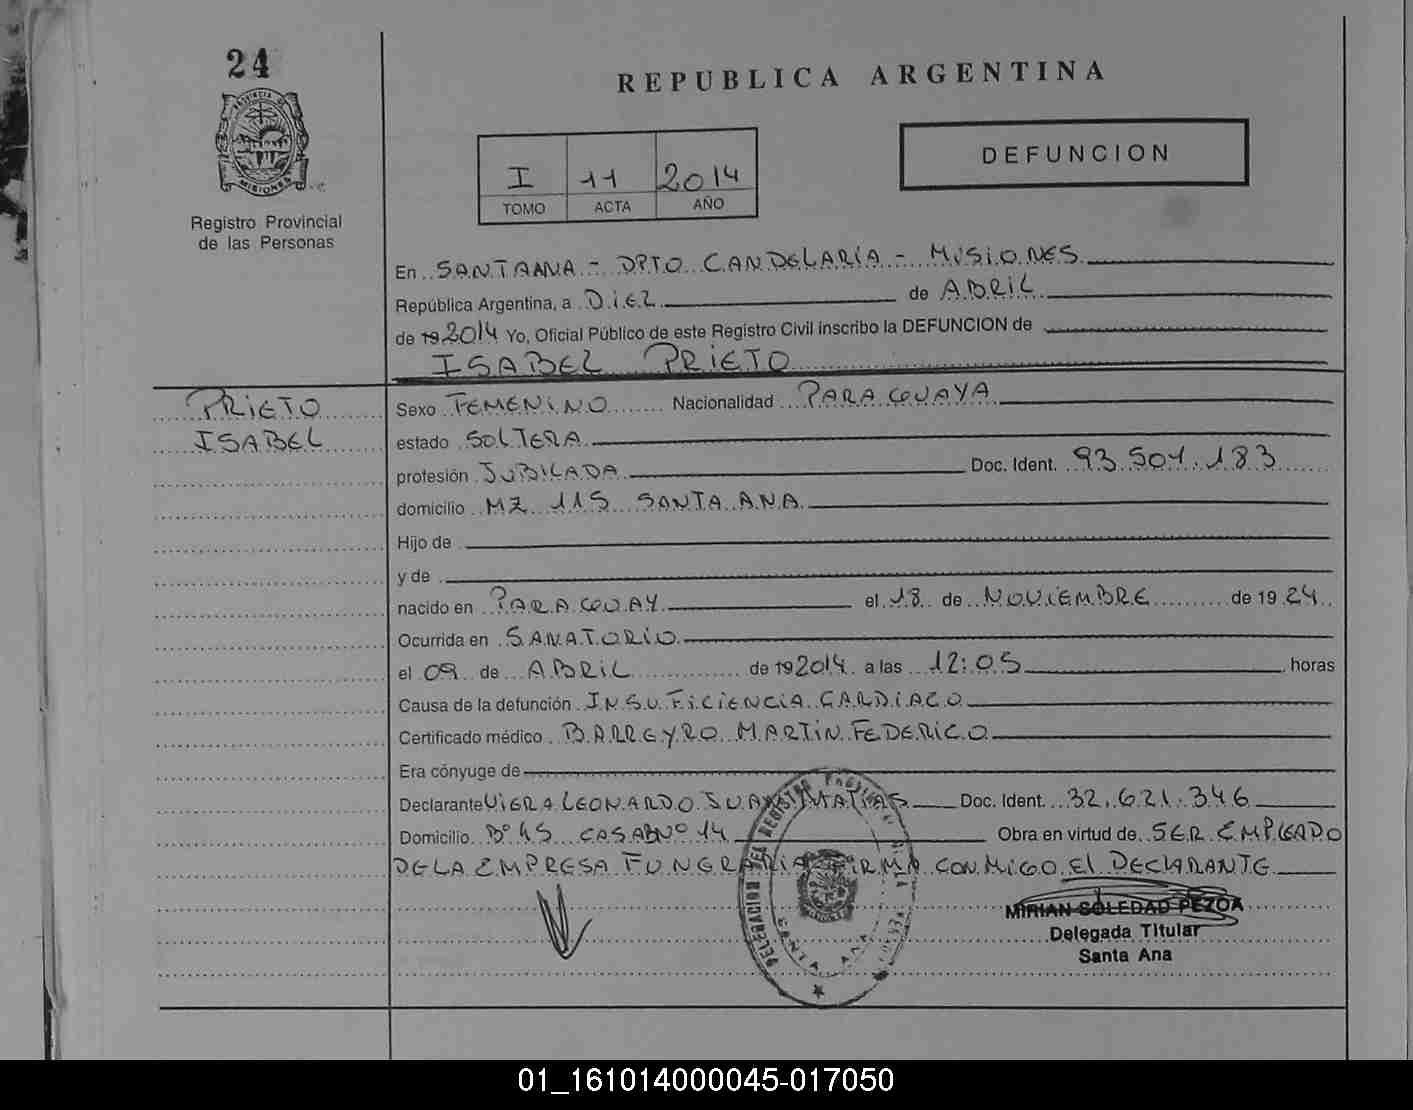 24
REPUBLICA ARGENTINA
PROVINCIA DE
MISIONES
Registro Provincial
de las Personas
I 11 2014
TOMO ACTA AÑO
DEFUNCION
En SANTA ANA - DPTO CANDELARIA - MISIONES
República Argentina, a DIEZ de ABRIL
de 19 2014 Yo, Oficial Público de este Registro Civil inscribo la DEFUNCION de
ISABEL PRIETO
PRIETO
ISABEL
Sexo FEMENINO Nacionalidad PARAGUAYA
estado SOLTERA
profesión JUBILADA Doc. Ident. 93.501.183
domicilio MZ 115 SANTA ANA
Hijo de
y de
nacido en PARAGUAY el 18 de NOVIEMBRE de 19 24
Ocurrida en SANATORIO
el 09 de ABRIL de 19 2014 a las 12:05 horas
Causa de la defunción INSUFICIENCIA CARDIACO
Certificado médico BARREYRO MARTIN FEDERICO
Era cónyuge de
Declarante VIERA LEONARDO JUAN MATIAS Doc. Ident. 32.621.346
Domicilio Bº 45 CASAB Nº 14 Obra en virtud de SER EMPLEADO
DE LA EMPRESA FUNERARIA FIRMA CONMIGO El DECLARANTE
DELEGACION DEL REGISTRO PROVINCIAL DE LA
SANTA ANA
MIRIAN SOLEDAD PEZOA
Delegada Titular
Santa Ana
01_161014000045-017050